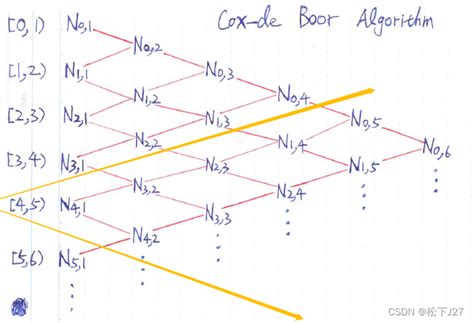 Cox-de Boor Algorithm
[0,1) N0,1
N0,2
[1,2) N1,1 N0,3
N1,2 N0,4
[2,3) N2,1 N1,3 N0,5
N2,2 N1,4 N0,6
[3,4) N3,1 N2,3 N1,5
N3,2 N2,4
[4,5) N4,1 N3,3
N4,2
[5,6) N5,1
CSDN @松下J27